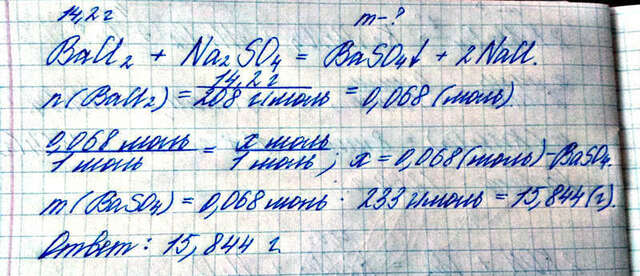 14,2 г m-?
BaCl₂ + Na₂SO₄ = BaSO₄↓ + 2NaCl.
n(BaCl₂) = 14,2 г / 208 г/моль = 0,068 (моль)
0,068 моль / 1 моль = x моль / 1 моль ; x = 0,068 (моль) - BaSO₄.
m(BaSO₄) = 0,068 моль · 233 г/моль = 15,844 (г).
Ответ: 15,844 г